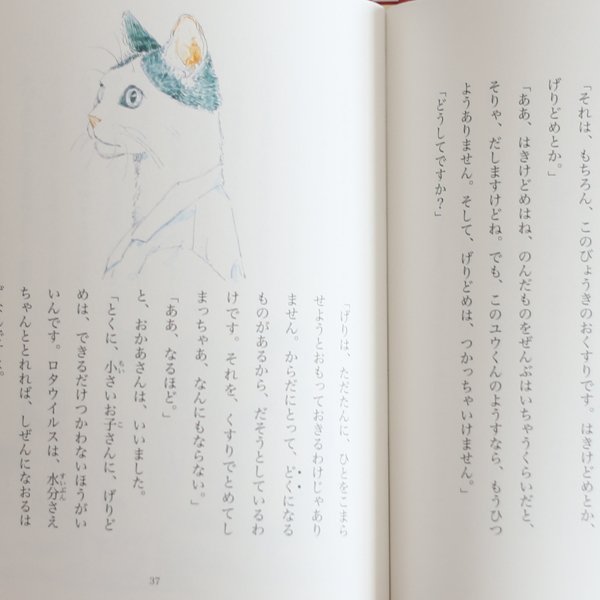 「それは、もちろん、このびょうきのおくすりです。はきけどめとか、
げりどめとか。」
「ああ、はきけどめはね、のんだものをぜんぶはいちゃうくらいだと、
そりゃ、だしますけどね。でも、このユウくんのようすなら、もうひつ
ようありません。そして、げりどめは、つかっちゃいけません。」
「どうしてですか？」
「げりは、ただたんに、ひとをこまら
せようとおもっておきるわけじゃあり
ません。からだにとって、どくになる
ものがあるから、だそうとしているわ
けです。それを、くすりでとめてし
まっちゃあ、なんにもならない。」
「ああ、なるほど。」
と、おかあさんは、いいました。
「とくに、小さいお子さんに、げりど
めは、できるだけつかわないほうがい
いんです。ロタウイルスは、水分さえ
ちゃんととれれば、しぜんになおるは
37